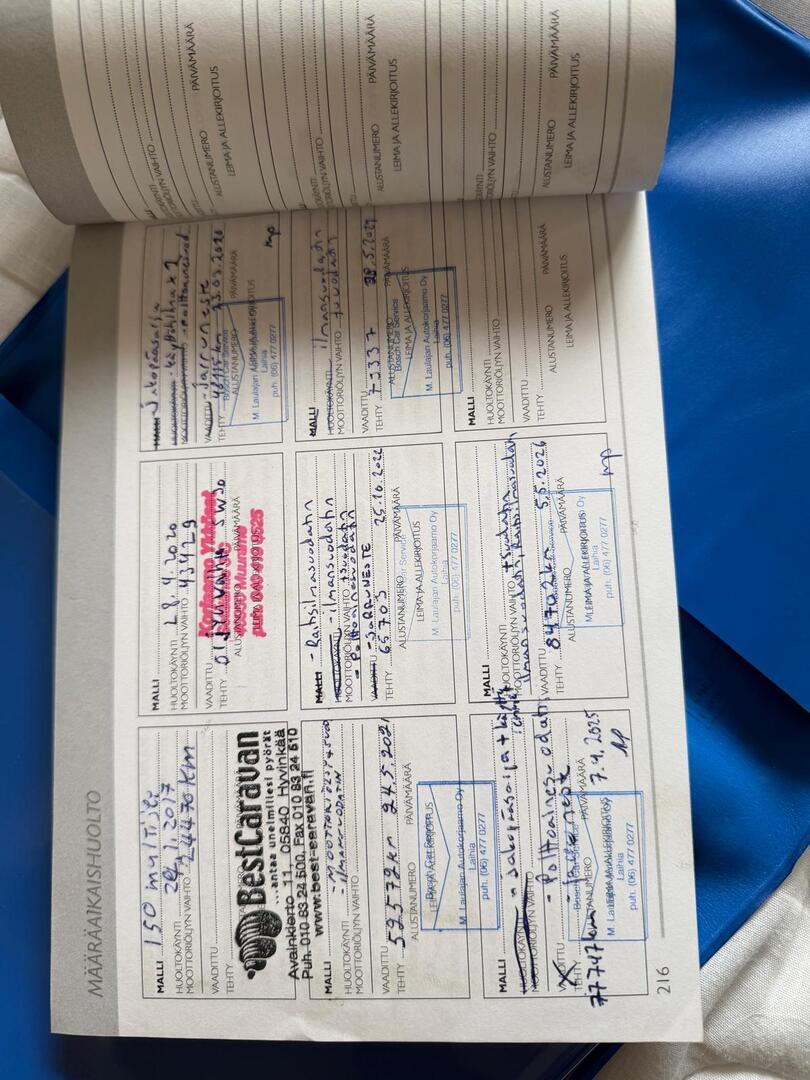 MÄÄRÄAIKAISHUOLTO
MALLI 150 multijet
HUOLTOKÄYNTI
MOOTTORIÖLJYN VAIHTO 24470 km
VAADITTU
TEHTY
BestCaravan
...antaa unelmillesi pyörät
Avainkierto 11, 05840 Hyvinkää
Puh. 010 83 24 500, Fax 010 83 24 510
www.best-caravan.fi
MALLI
HUOLTOKÄYNTI 28.4.2020
MOOTTORIÖLJYN VAIHTO 43429
VAADITTU
TEHTY öljynvaihto 5W30
ALUSTANUMERO PÄIVÄMÄÄRÄ
MALLI Jakopääsarja
HUOLTOKÄYNTI - käyttöhihna x 2
MOOTTORIÖLJYN VAIHTO
VAADITTU - Jarruneste
TEHTY 23.03.2020
ALUSTANUMERO PÄIVÄMÄÄRÄ
Bosch Car Service
LEIMA JA ALLEKIRJOITUS
M. Laulajan Autokorjaamo Oy
Laihia
puh. (06) 477 0277
mp
MALLI - MOOTTORIÖLJY + SUOD
HUOLTOKÄYNTI - ILMANSUODATIN
MOOTTORIÖLJYN VAIHTO
VAADITTU
TEHTY 52572km 24.5.2021
ALUSTANUMERO PÄIVÄMÄÄRÄ
Bosch Car Service
LEIMA JA ALLEKIRJOITUS
M. Laulajan Autokorjaamo Oy
Laihia
puh. (06) 477 0277
MALLI - Raitisilmasuodatin
HUOLTOKÄYNTI - ilmansuodatin
MOOTTORIÖLJYN VAIHTO + suodatin
- Polttoainesuodatin
VAADITTU - JARRUNESTE
TEHTY 65703
ALUSTANUMERO PÄIVÄMÄÄRÄ
Car Service
LEIMA JA ALLEKIRJOITUS
M. Laulajan Autokorjaamo Oy
Laihia
puh. (06) 477 0277
MALLI
HUOLTOKÄYNTI ilmansuodatin
MOOTTORIÖLJYN VAIHTO + suodatin
VAADITTU
TEHTY 73337 28.5.2024
ALUSTANUMERO PÄIVÄMÄÄRÄ
Bosch Car Service
LEIMA JA ALLEKIRJOITUS
M. Laulajan Autokorjaamo Oy
Laihia
puh. (06) 477 0277
MALLI - Jakopääsarja + käyttöhihnat
HUOLTOKÄYNTI
MOOTTORIÖLJYN VAIHTO
VAADITTU - Polttoainesuodatin
TEHTY - Jarruneste
77747km 7.4.2025
Bosch Car Service
M. Laulajan Autokorjaamo Oy
Laihia
puh. (06) 477 0277
MALLI
HUOLTOKÄYNTI
MOOTTORIÖLJYN VAIHTO + suodatin
ilmansuodatin, Raitisilmasuodatin
VAADITTU
TEHTY 84702km 5.5.2026
ALUSTANUMERO PÄIVÄMÄÄRÄ
LEIMA JA ALLEKIRJOITUS
M. Laulajan Autokorjaamo Oy
Laihia
puh. (06) 477 0277
mp
MALLI
HUOLTOKÄYNTI
MOOTTORIÖLJYN VAIHTO
VAADITTU
TEHTY
ALUSTANUMERO PÄIVÄMÄÄRÄ
LEIMA JA ALLEKIRJOITUS
216
MOOTTORIÖLJYN VAIHTO
VAADITTU
TEHTY
ALUSTANUMERO PÄIVÄMÄÄRÄ
LEIMA JA ALLEKIRJOITUS
MOOTTORIÖLJYN VAIHTO
VAADITTU
ALUSTANUMERO PÄIVÄMÄÄRÄ
LEIMA JA ALLEKIRJOITUS
MOOTTORIÖLJYN VAIHTO
VAADITTU
TEHTY
ALUSTANUMERO PÄIVÄMÄÄRÄ
LEIMA JA ALLEKIRJOITUS